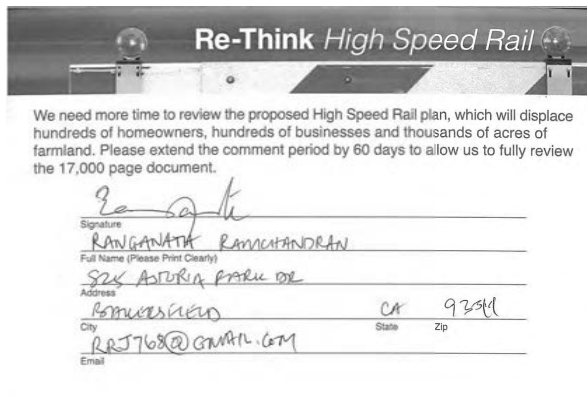 Re-Think High Speed Rail
We need more time to review the proposed High Speed Rail plan, which will displace
hundreds of homeowners, hundreds of businesses and thousands of acres of
farmland. Please extend the comment period by 60 days to allow us to fully review
the 17,000 page document.
Signature
RANGANATH RAMCHANDRAN
Full Name (Please Print Clearly)
825 ASTORIA PARK DR
Address
BAKERSFIELD CA
City State Zip
RRJ768@GMAIL.COM
Email